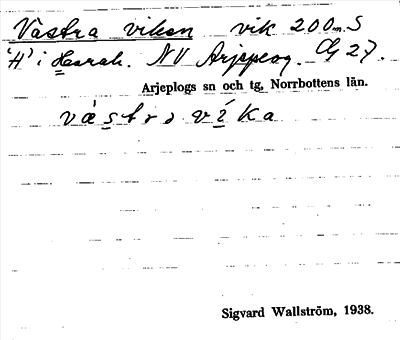 Västra viken vik 200 m S
'H' i Harrah. NV Arjeplog. Cg 27.
Arjeplogs sn och tg, Norrbottens län.
væ̀stra víka
Sigvard Wallström, 1938.